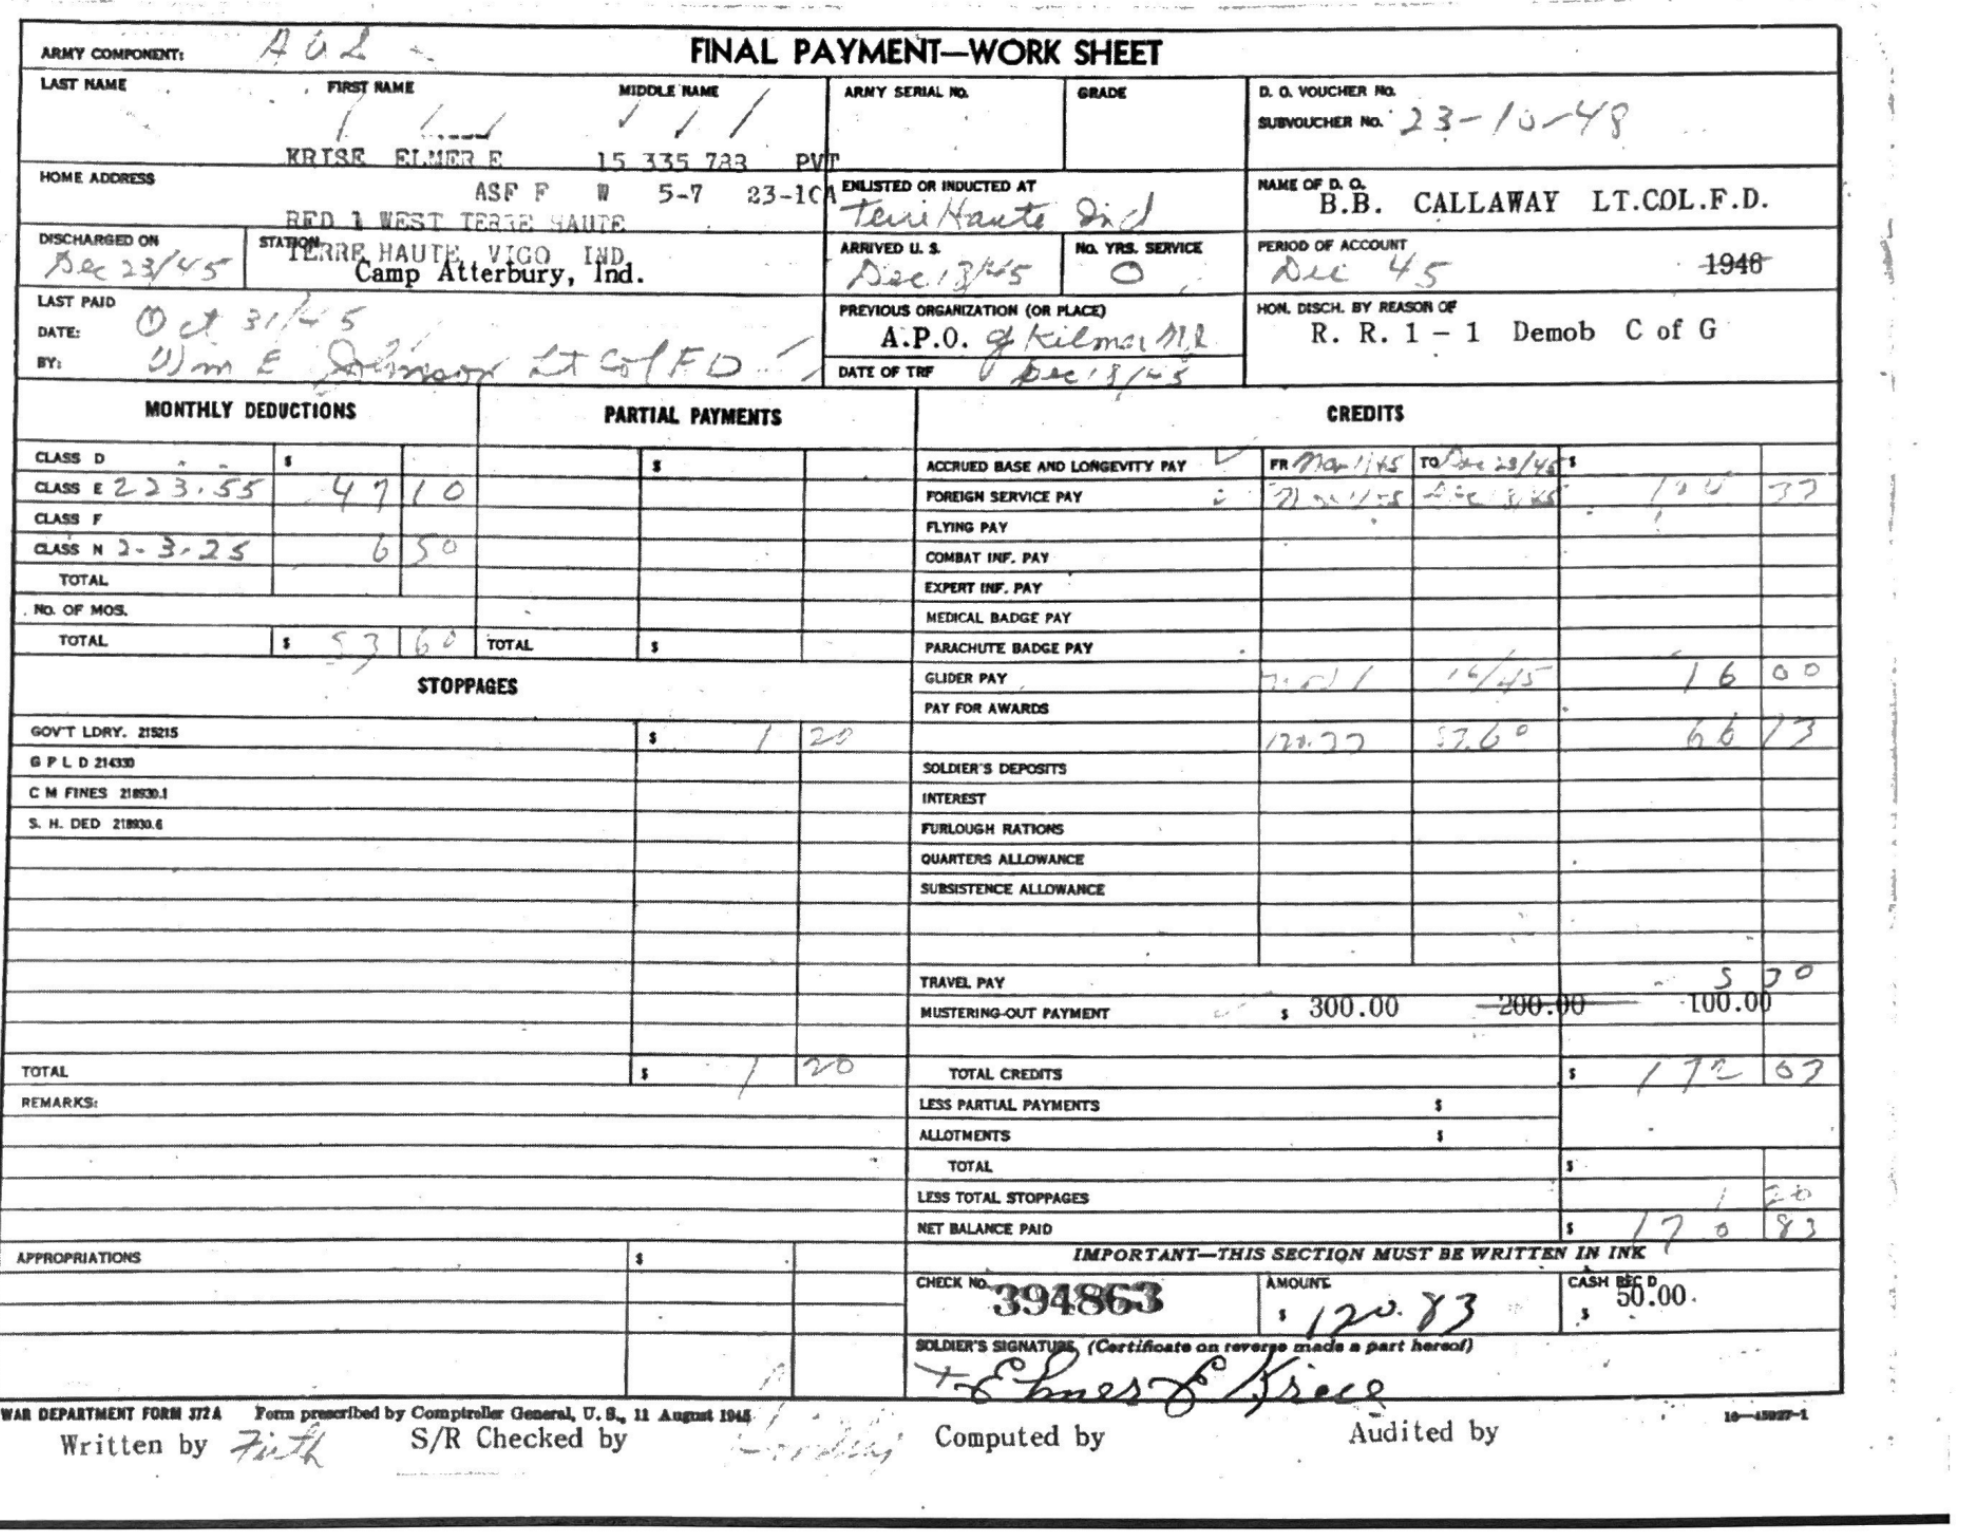 ARMY COMPONENT:
FINAL PAYMENT—WORK SHEET
LAST NAME FIRST NAME MIDDLE NAME ARMY SERIAL NO. GRADE D. O. VOUCHER NO.
SUBVOUCHER NO. 23-10-48
KRISE ELMER E 15 335 733 PVT
HOME ADDRESS
ASF F W 5-7 23-10A
ENLISTED OR INDUCTED AT
Terre Haute Ind
NAME OF D. O.
B.B. CALLAWAY LT.COL.F.D.
RFD 1 WEST TERRE HAUTE
DISCHARGED ON
Dec 23/45
STATION
TERRE HAUTE VIGO IND
Camp Atterbury, Ind.
ARRIVED U. S.
Dec 13/45
NO. YRS. SERVICE
0
PERIOD OF ACCOUNT
Dec 45 1946
LAST PAID
DATE: Oct 31/45
BY: Wm E Johnson Lt Col FD
PREVIOUS ORGANIZATION (OR PLACE)
A.P.O. Kilmer
DATE OF TRF Dec 18/45
HON. DISCH. BY REASON OF
R. R. 1 - 1 Demob C of G
MONTHLY DEDUCTIONS PARTIAL PAYMENTS CREDITS
CLASS D $ $
CLASS E 2 23.55 47 10
CLASS F
CLASS N 2-3.25 6 50
TOTAL
NO. OF MOS.
TOTAL $ 53 60 TOTAL $
ACCRUED BASE AND LONGEVITY PAY FR TO Dec 23/45 $
FOREIGN SERVICE PAY
FLYING PAY
COMBAT INF. PAY
EXPERT INF. PAY
MEDICAL BADGE PAY
PARACHUTE BADGE PAY
GLIDER PAY 16/45 16 00
PAY FOR AWARDS
66 13
SOLDIER'S DEPOSITS
INTEREST
FURLOUGH RATIONS
QUARTERS ALLOWANCE
SUBSISTENCE ALLOWANCE
TRAVEL PAY 5 70
MUSTERING-OUT PAYMENT $ 300.00 200.00 100.00
TOTAL CREDITS $ 172 03
LESS PARTIAL PAYMENTS $
ALLOTMENTS $
TOTAL $
LESS TOTAL STOPPAGES 1 20
NET BALANCE PAID $ 170 83
STOPPAGES
GOV'T LDRY. 215215 $ 1 20
G P L D 214330
C M FINES 218930.1
S. H. DED 218930.6
TOTAL $ 1 20
REMARKS:
APPROPRIATIONS $
IMPORTANT—THIS SECTION MUST BE WRITTEN IN INK
CHECK NO. 394863
AMOUNT
$ 120.83
CASH REC'D
$ 50.00.
SOLDIER'S SIGNATURE (Certificate on reverse made a part hereof)
Elmer E Krise
WAR DEPARTMENT FORM 372A Form prescribed by Comptroller General, U. S., 11 August 1945 16—45927-1
Written by Firth S/R Checked by Computed by Audited by